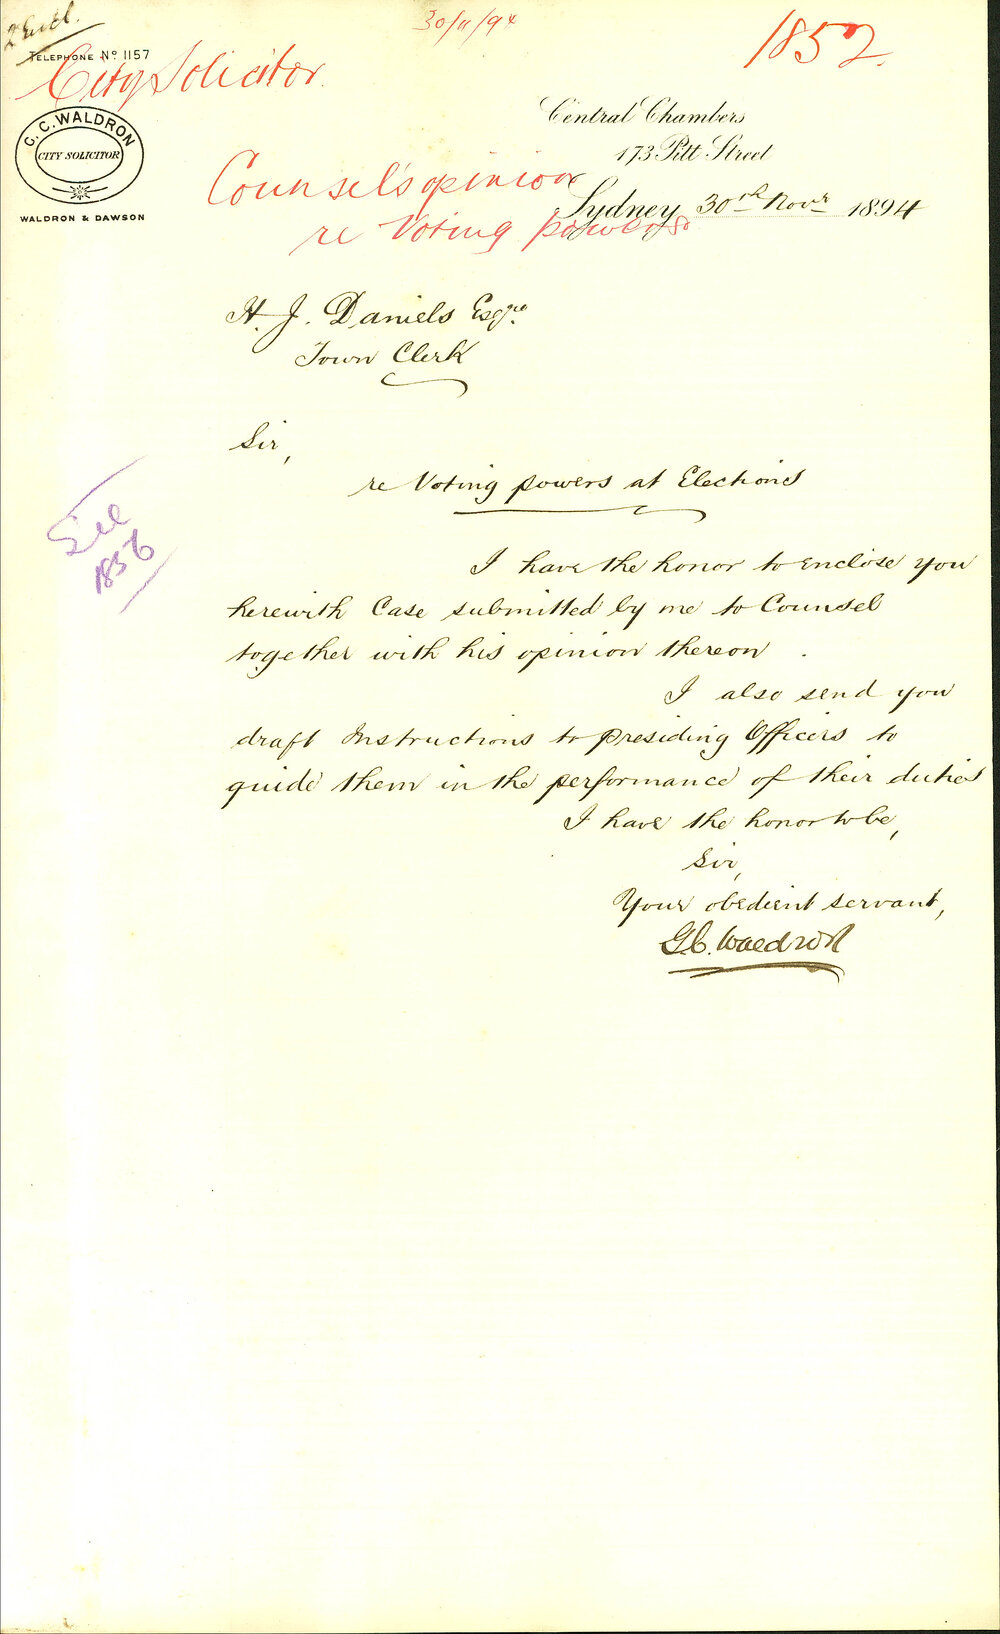 2 Encl.
30/11/94
1852.
TELEPHONE No 1157
City Solicitor.
G. C. WALDRON
CITY SOLICITOR
WALDRON & DAWSON
Central Chambers
173 Pitt Street
Counsel's opinion
re Voting powers
Sydney 30th Novr 1894
H. J. Daniels Esqre
Town Clerk
Sir,
re Voting powers at Elections
See
1856
I have the honor to enclose you
herewith Case submitted by me to Counsel
together with his opinion thereon.
I also send you
draft Instructions to presiding Officers to
guide them in the performance of their duties
I have the honor to be,
Sir,
Your obedient servant,
G.C. Waldron